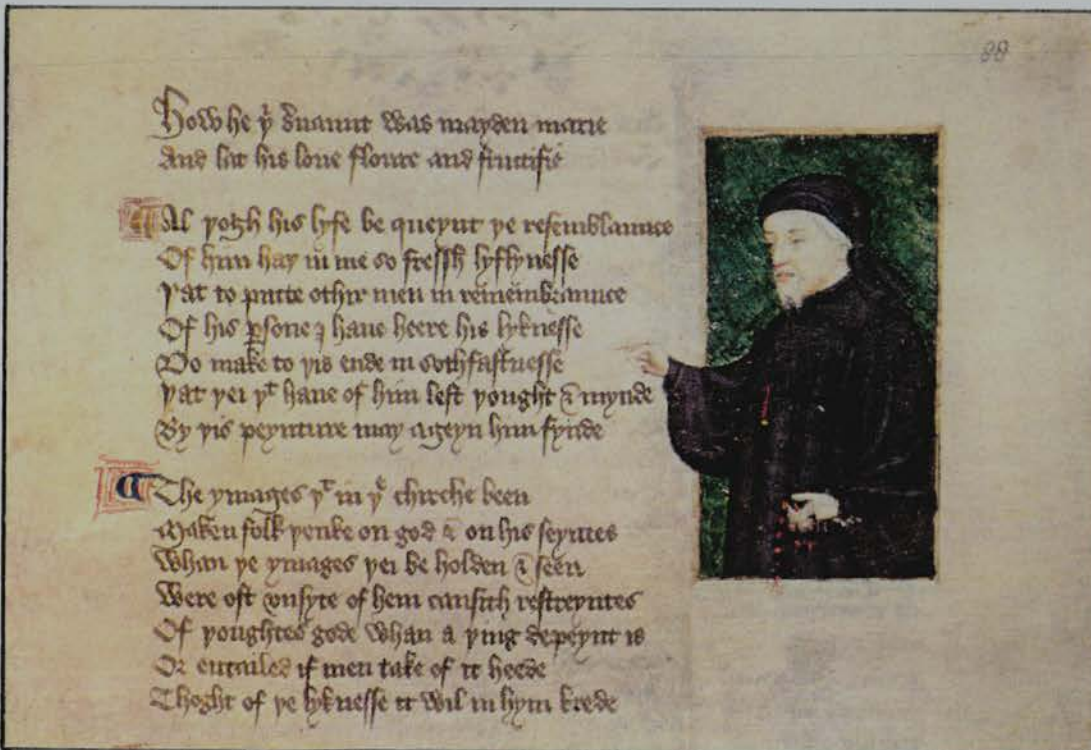 88
How he yͬ suaunt was mayden marie
And lat his loue floure and fructifie
Al þogh his lyfe be queynt þe resemblaunce
Of him haþ in me so fressh lyflynesse
Þat to putte othir men in remembraunce
Of his ꝑsone I haue heere his lyknesse
Do make to þis ende in sothfastnesse
Þat þei þᵗ haue of him left þought & mynde
By þis peynture may ageyn him fynde
The ymages þᵗ in þᵉ chirche been
Maken folk þenke on god & on his seyntes
Whan þe ymages þei be holden & seen
Were oft vnsyte of hem causith restreyntes
Of þoughtes gode whan a þing depeynt is
Or entailed if men take of it heede
Thoght of þe lyknesse it wil in hym brede